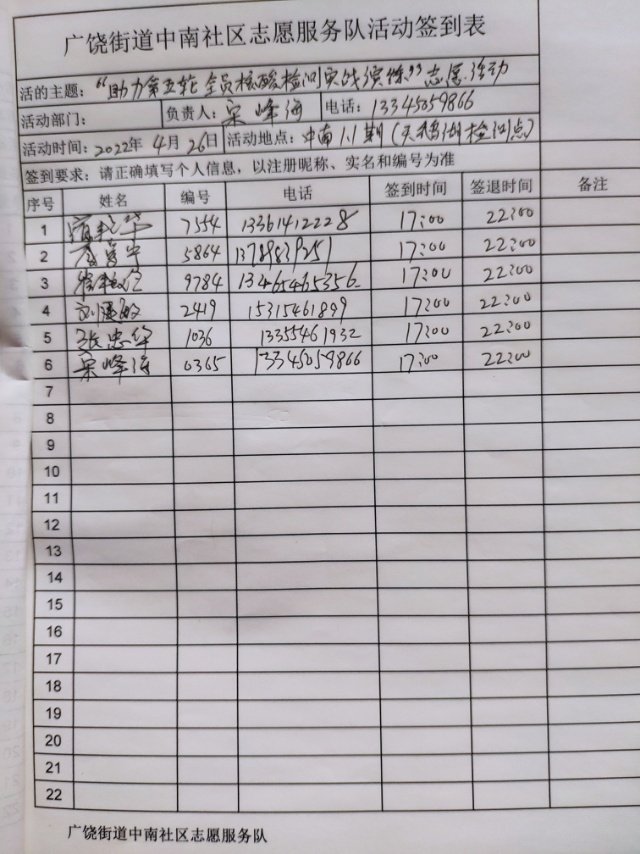 广饶街道中南社区志愿服务队活动签到表
活的主题：“助力第五轮全员核酸检测实战演练”志愿活动
活动部门： 负责人：宋峰海 电话：13345059866
活动时间：2022年4月26日 活动地点：中南1.1期（天鹅湖检测点）
签到要求：请正确填写个人信息，以注册昵称、实名和编号为准
序号 姓名 编号 电话 签到时间 签退时间 备注
1 7554 13361412228 17:00 22:00
2 5864 17:00 22:00
3 9784 13465465356 17:00 22:00
4 2419 15315461899 17:00 22:00
5 张忠华 1036 13355461932 17:00 22:00
6 宋峰海 0365 13345059866 17:00 22:00
7
8
9
10
11
12
13
14
15
16
17
18
19
20
21
22
广饶街道中南社区志愿服务队